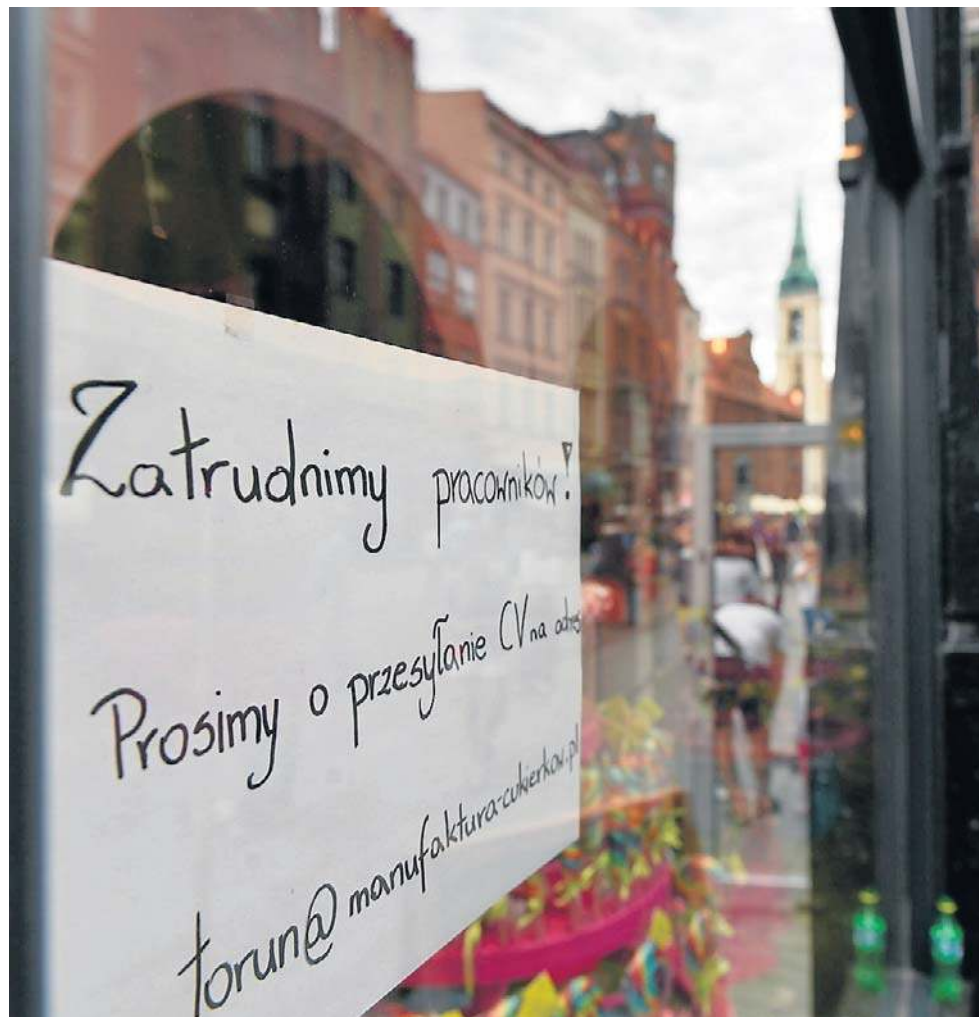 Zatrudnimy pracowników!
Prosimy o przesyłanie CV na adres
torun@manufaktura-cukierkow.pl